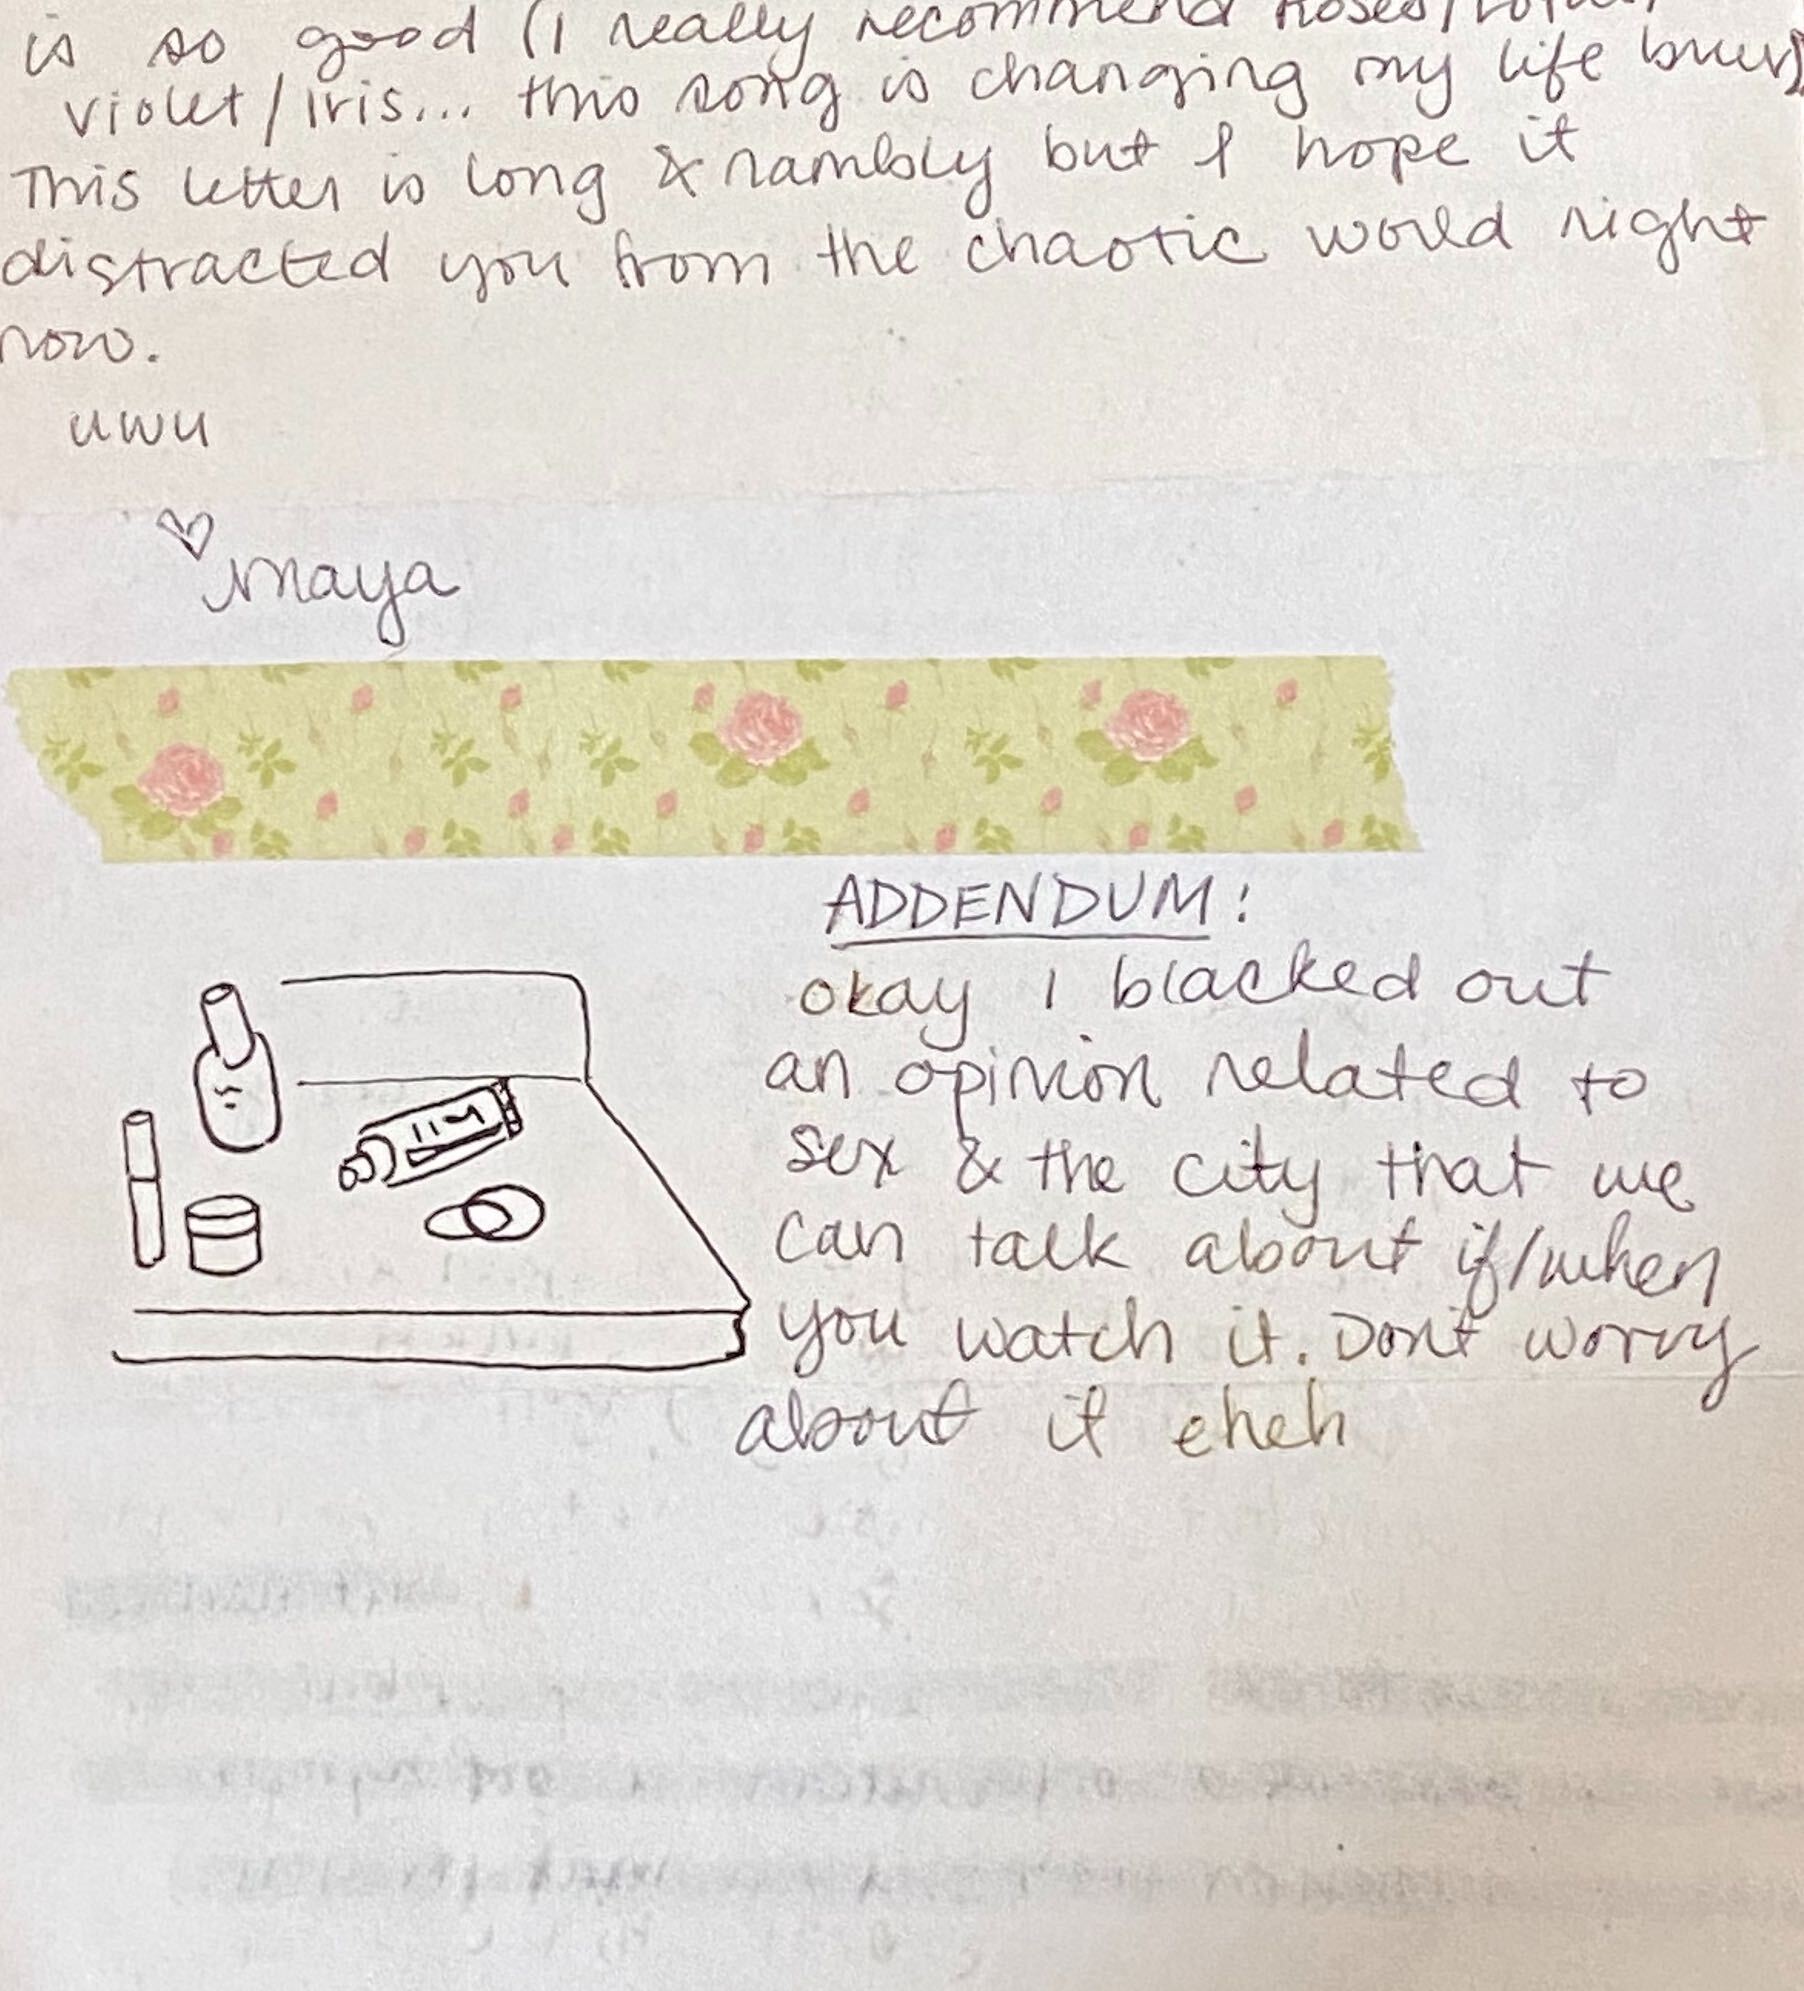 is so good (I really recommend Roses/Lotus/
violet/iris... this song is changing my life bruv)
This letter is long & rambly but I hope it
distracted you from the chaotic world right
now.
uwu
♡ maya
ADDENDUM:
okay I blacked out
an opinion related to
sex & the city that we
can talk about if/when
you watch it. Don't worry
about it eheh